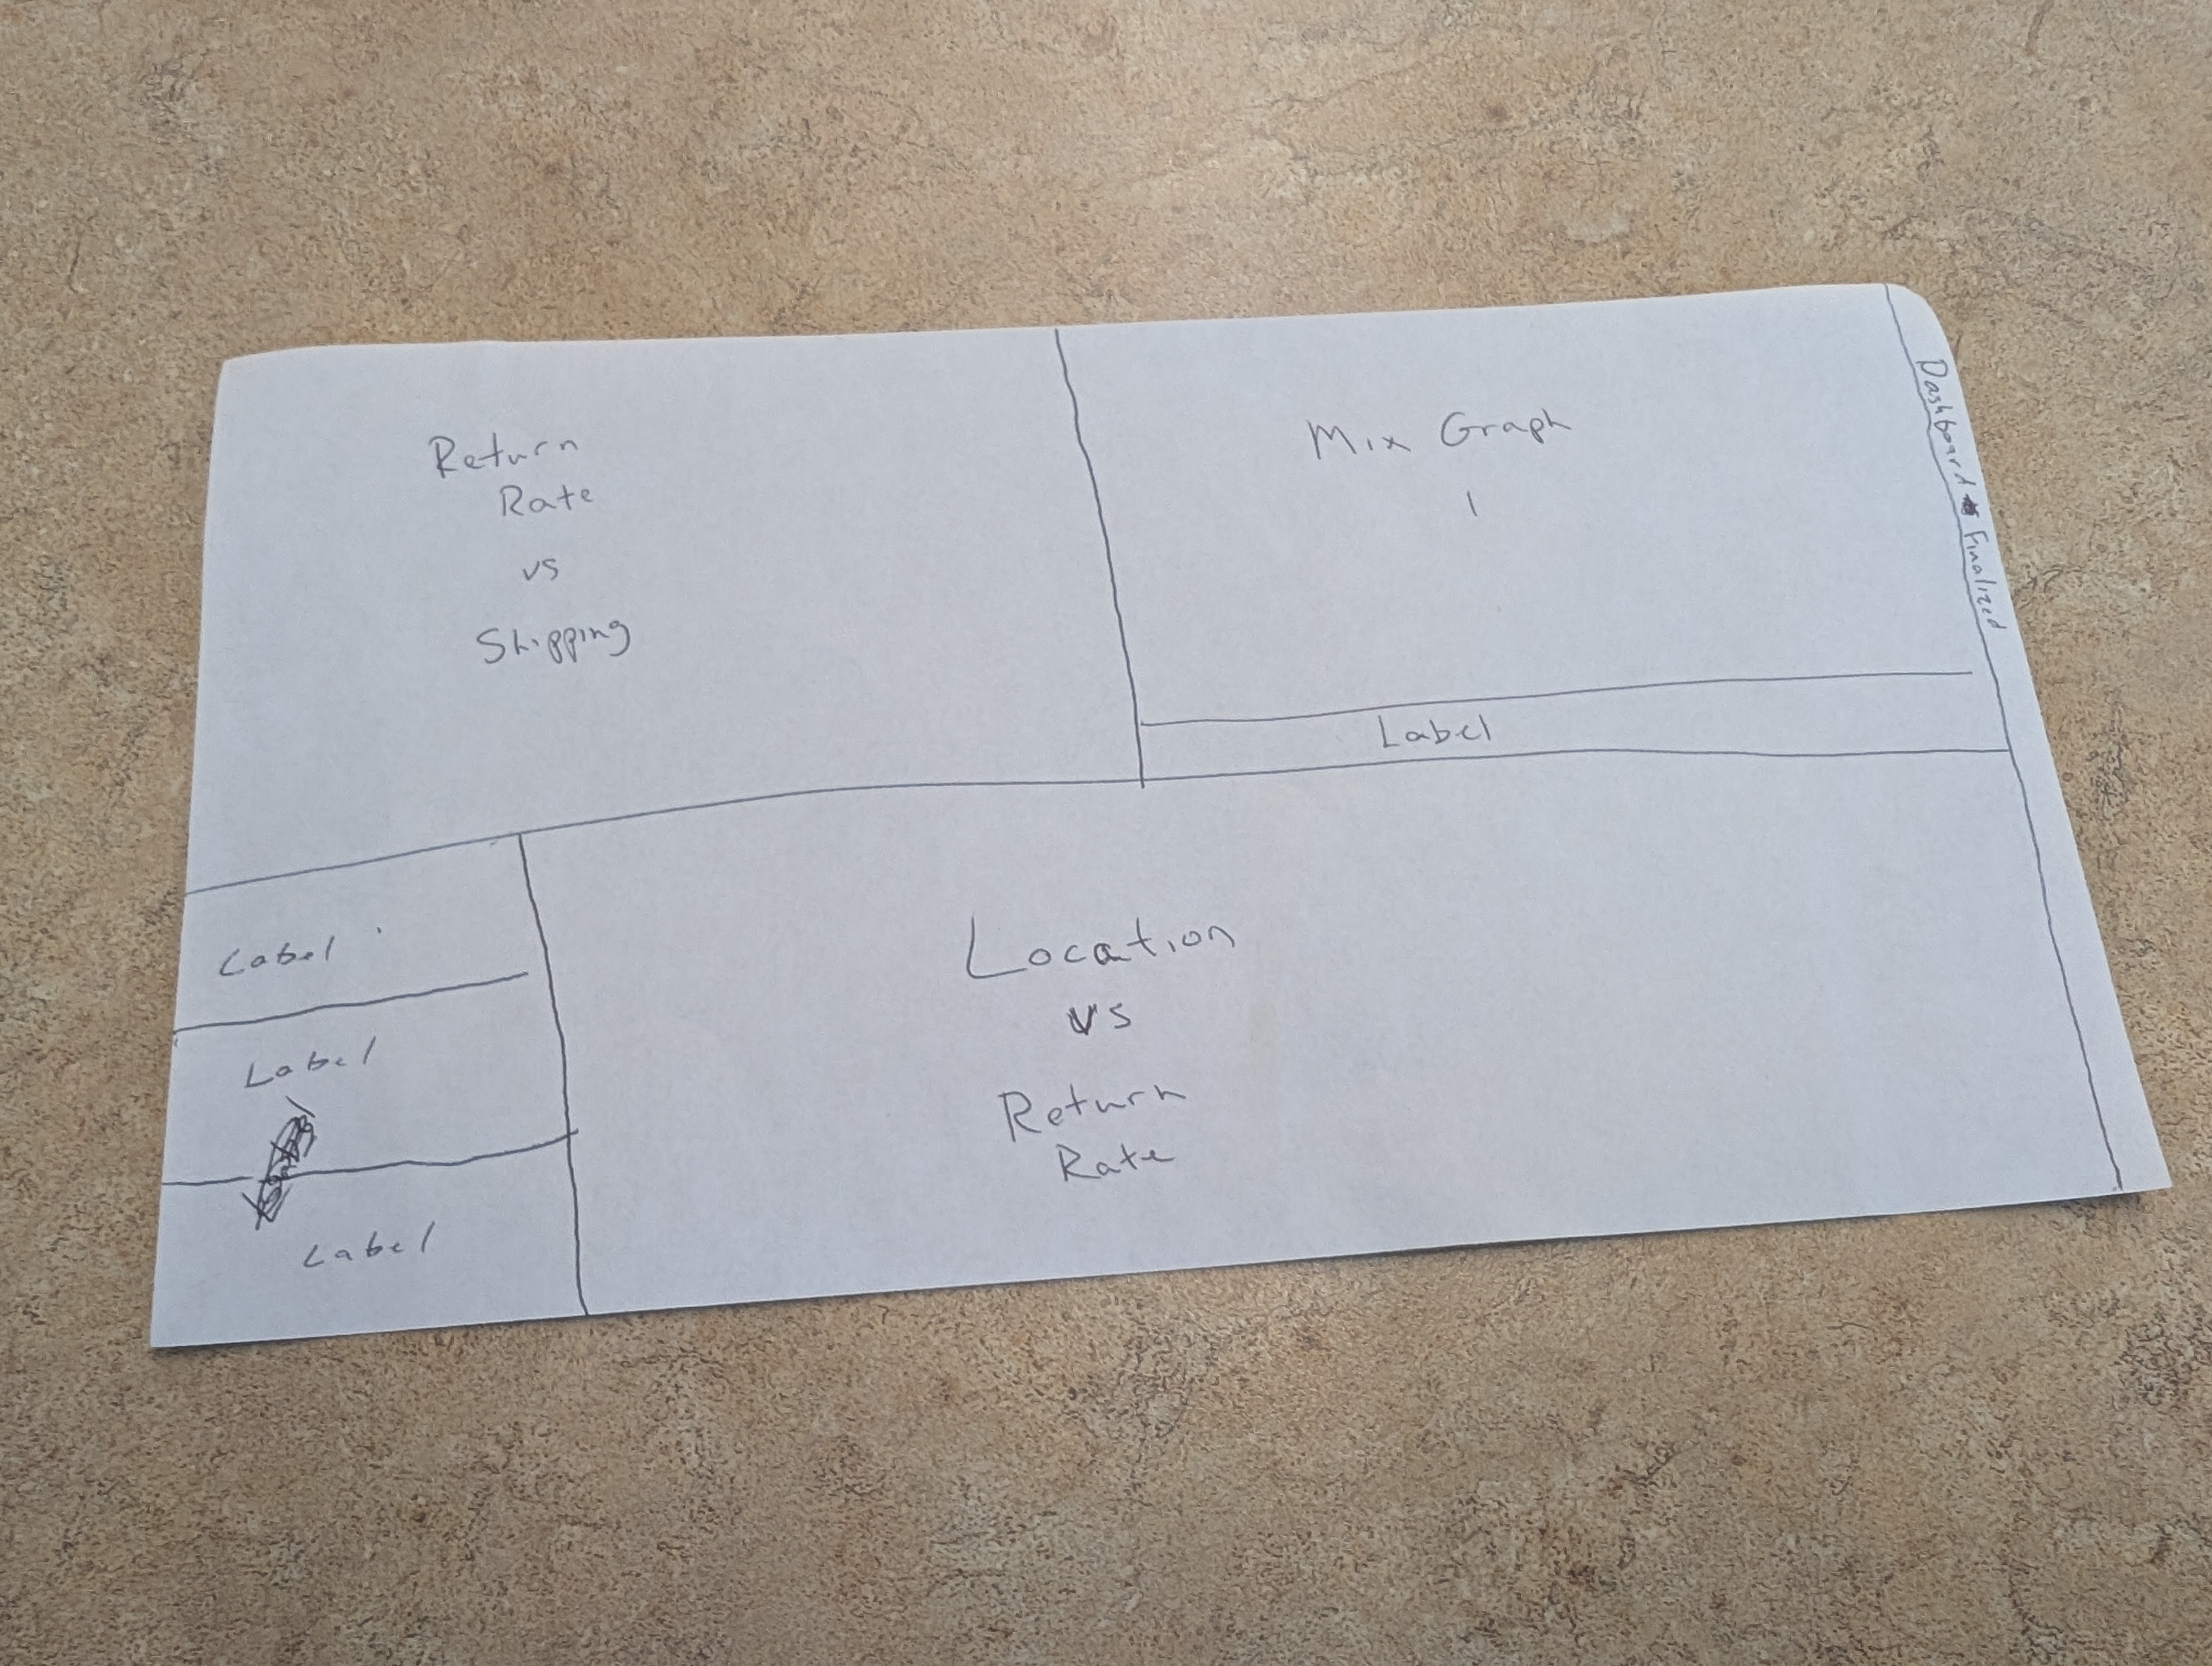 Return
Rate
vs
Shipping
Mix Graph
1
Label
Dashboard Finalized
Label
Label
Label
Location
vs
Return
Rate